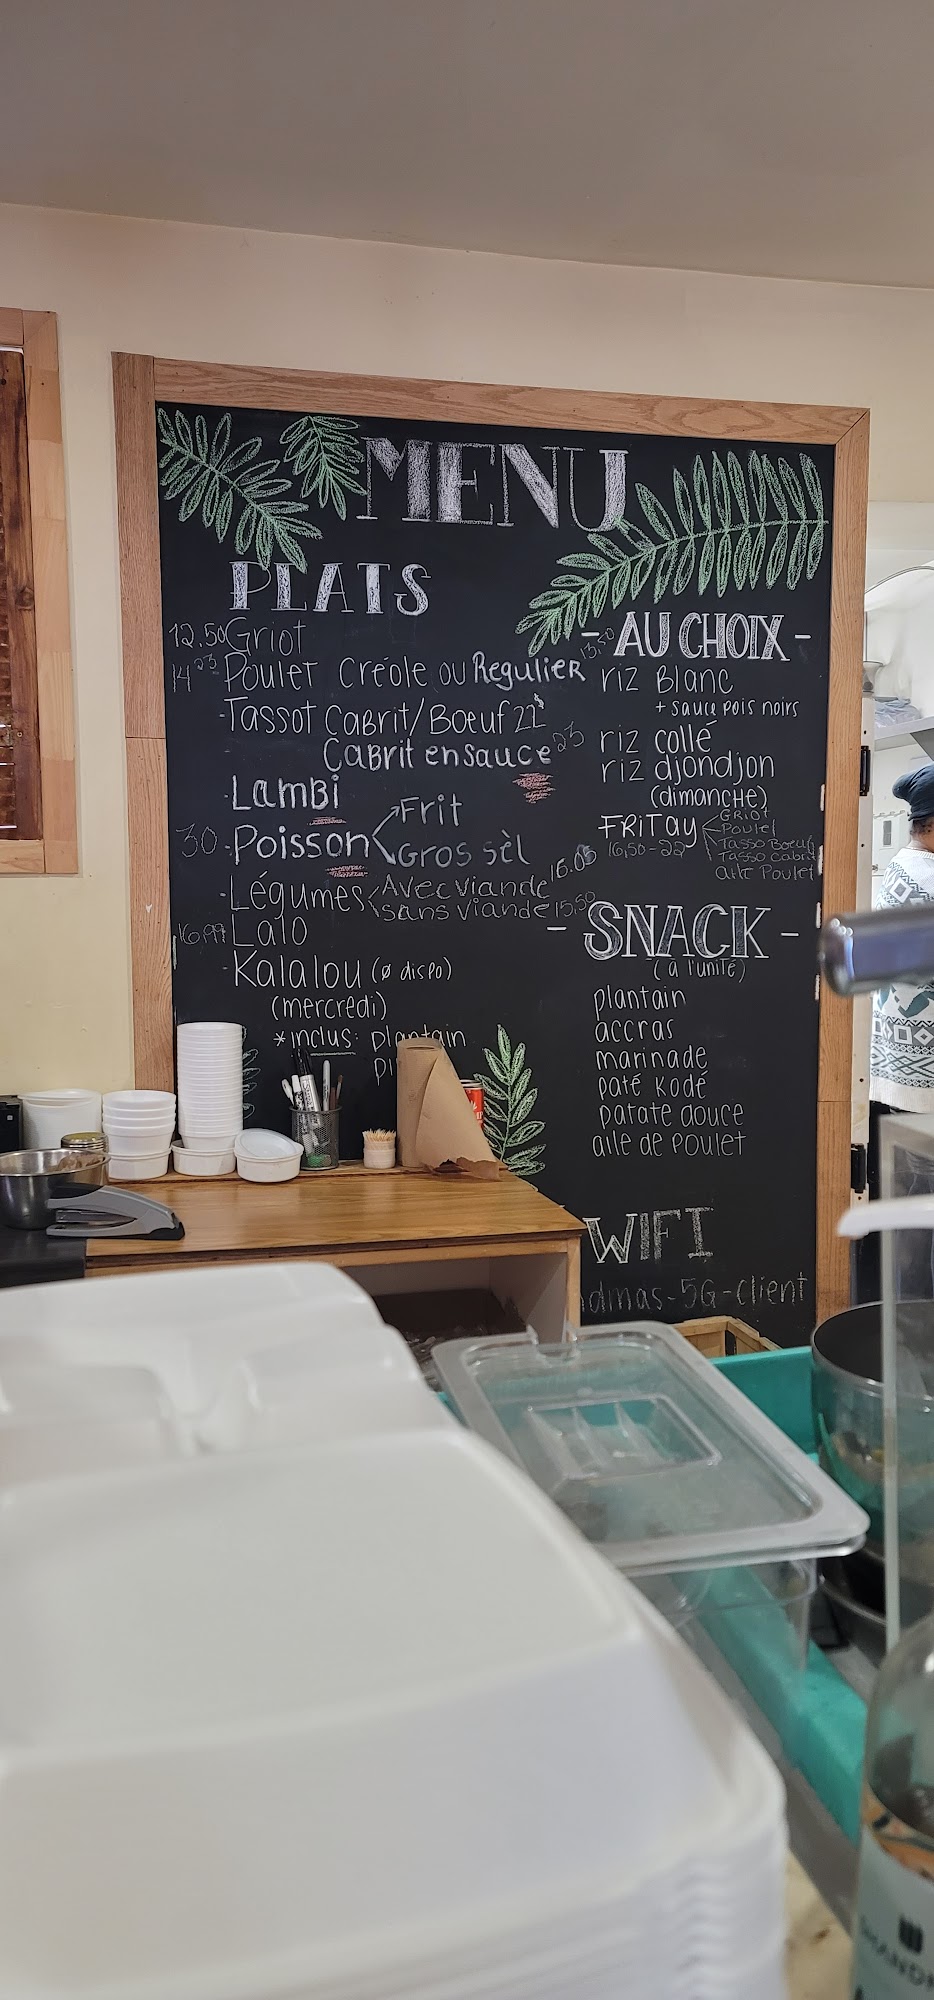 MENU
PLATS
12.50 Griot
14 23 Poulet Créole ou Regulier 13,50
- Tassot Cabrit/Boeuf 22$
Cabrit en sauce 23
- Lambi
30 - Poisson
Frit
Gros sèl
- Légumes
Avec viande 16.05
sans viande 15,50
16,99 Lalo
- Kalalou (ø dispo)
(mercredi)
* inclus: plantain
- AU CHOIX -
riz Blanc
+ sauce pois noirs
riz collé
riz djondjon
(dimanche)
FRiTay
16,50-22
Griot
Poulet
Tasso Boeuf
Tasso Cabrit
aile Poulet
- SNACK -
(à l'unité)
plantain
accras
marinade
paté kodé
patate douce
aile de poulet
WIFI
dmas-5G-client